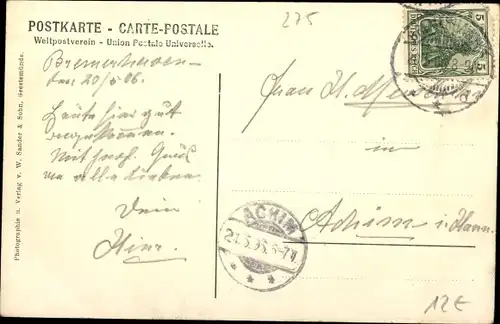 275
POSTKARTE - CARTE-POSTALE
Weltpostverein - Union Postale Universelle.
Bremerhaven
den 20/5 06.
Heute hier gut
angekommen.
Mit herzl. Gruß
an alle Lieben
Dein
Hinr.
Frau H. Meyer
in
Achim i. Hann.
ACHIM
21.5.06.6-7V.
5 5
12€
Photographie u. Verlag v. W. Sander & Sohn, Geestemünde.